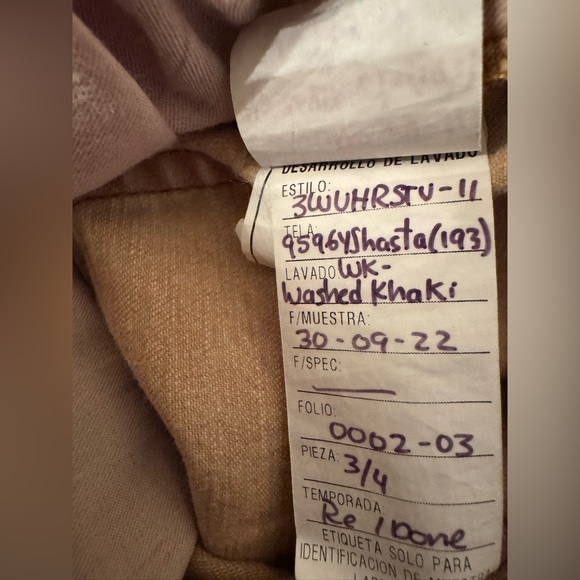 DESARROLLO DE LAVADO
ESTILO: 3WUHRSTV-11
TELA: 9596Y Shasta (193)
LAVADO WK-
Washed Khaki
F/MUESTRA:
30-09-22
F/SPEC:
FOLIO:
0002-03
PIEZA: 3/4
TEMPORADA:
Re/Done
ETIQUETA SOLO PARA
IDENTIFICACION DE